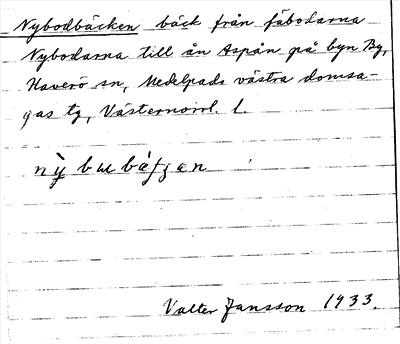 Nybodbäcken bäck från fäbodarna
Nybodarna till ån Aspån på byn By,
Haverö sn, Medelpads västra domsa-
gas tg, Västernorrl. l.
nỳbɯbàfʒɛn
Valter Jansson 1933.